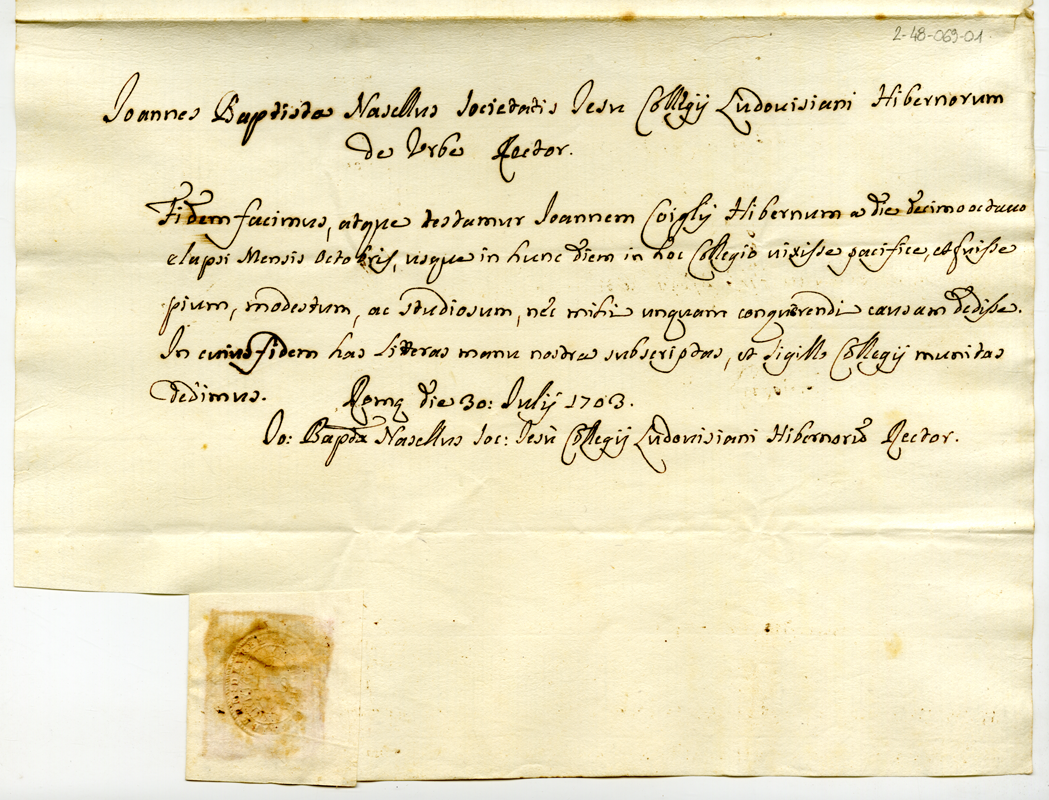 2-48-069-01
Joannes Baptista Nasellus Societatis Jesu Collegij Ludouisiani Hibernorum
de Vrbe Rector.
Fidem facimus, atque testamur Joannem Coigly Hibernum a die decimo octauo
elapsi Mensis Octobris, usque in hunc diem in hoc Collegio uixisse pacifice, et fuisse
pium, modestum, ac studiosum, nec mihi unquam conquerendi causam dedisse.
In cuius fidem has Litteras manu nostra subscriptas, et sigillo Collegij munitas
dedimus. Romę die 30: Julij 1703.
Jo: Bapta Nasellus Soc: Jesu Collegij Ludouisiani Hibernorũ Rector.